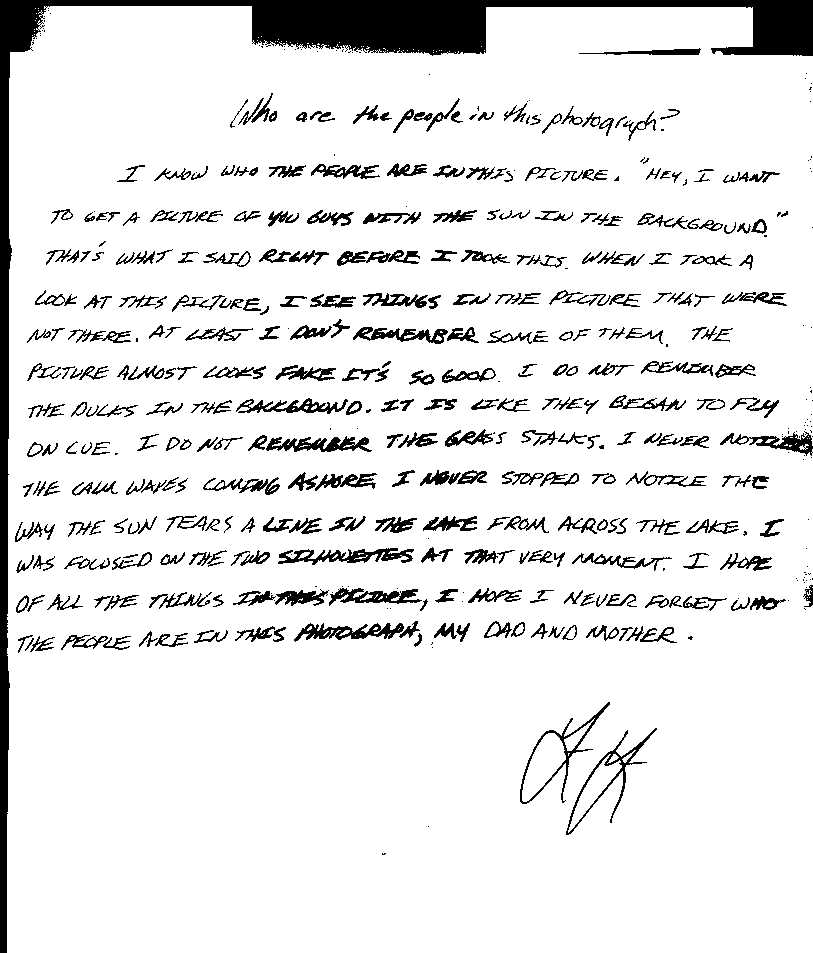 Who are the people in this photograph?
I KNOW WHO THE PEOPLE ARE IN THIS PICTURE. "HEY, I WANT
TO GET A PICTURE OF YOU GUYS WITH THE SUN IN THE BACKGROUND."
THAT'S WHAT I SAID RIGHT BEFORE I TOOK THIS. WHEN I TOOK A
LOOK AT THIS PICTURE, I SEE THINGS IN THE PICTURE THAT WERE
NOT THERE. AT LEAST I DON'T REMEMBER SOME OF THEM. THE
PICTURE ALMOST LOOKS FAKE IT'S SO GOOD. I DO NOT REMEMBER
THE DUCKS IN THE BACKGROUND. IT IS LIKE THEY BEGAN TO FLY
ON CUE. I DO NOT REMEMBER THE GRASS STALKS. I NEVER NOTICED
THE CALM WAVES COMING ASHORE. I NEVER STOPPED TO NOTICE THE
WAY THE SUN TEARS A LINE IN THE LAKE FROM ACROSS THE LAKE. I
WAS FOCUSED ON THE TWO SILHOUETTES AT THAT VERY MOMENT. I HOPE
OF ALL THE THINGS IN THIS PICTURE, I HOPE I NEVER FORGET WHO
THE PEOPLE ARE IN THIS PHOTOGRAPH, MY DAD AND MOTHER.